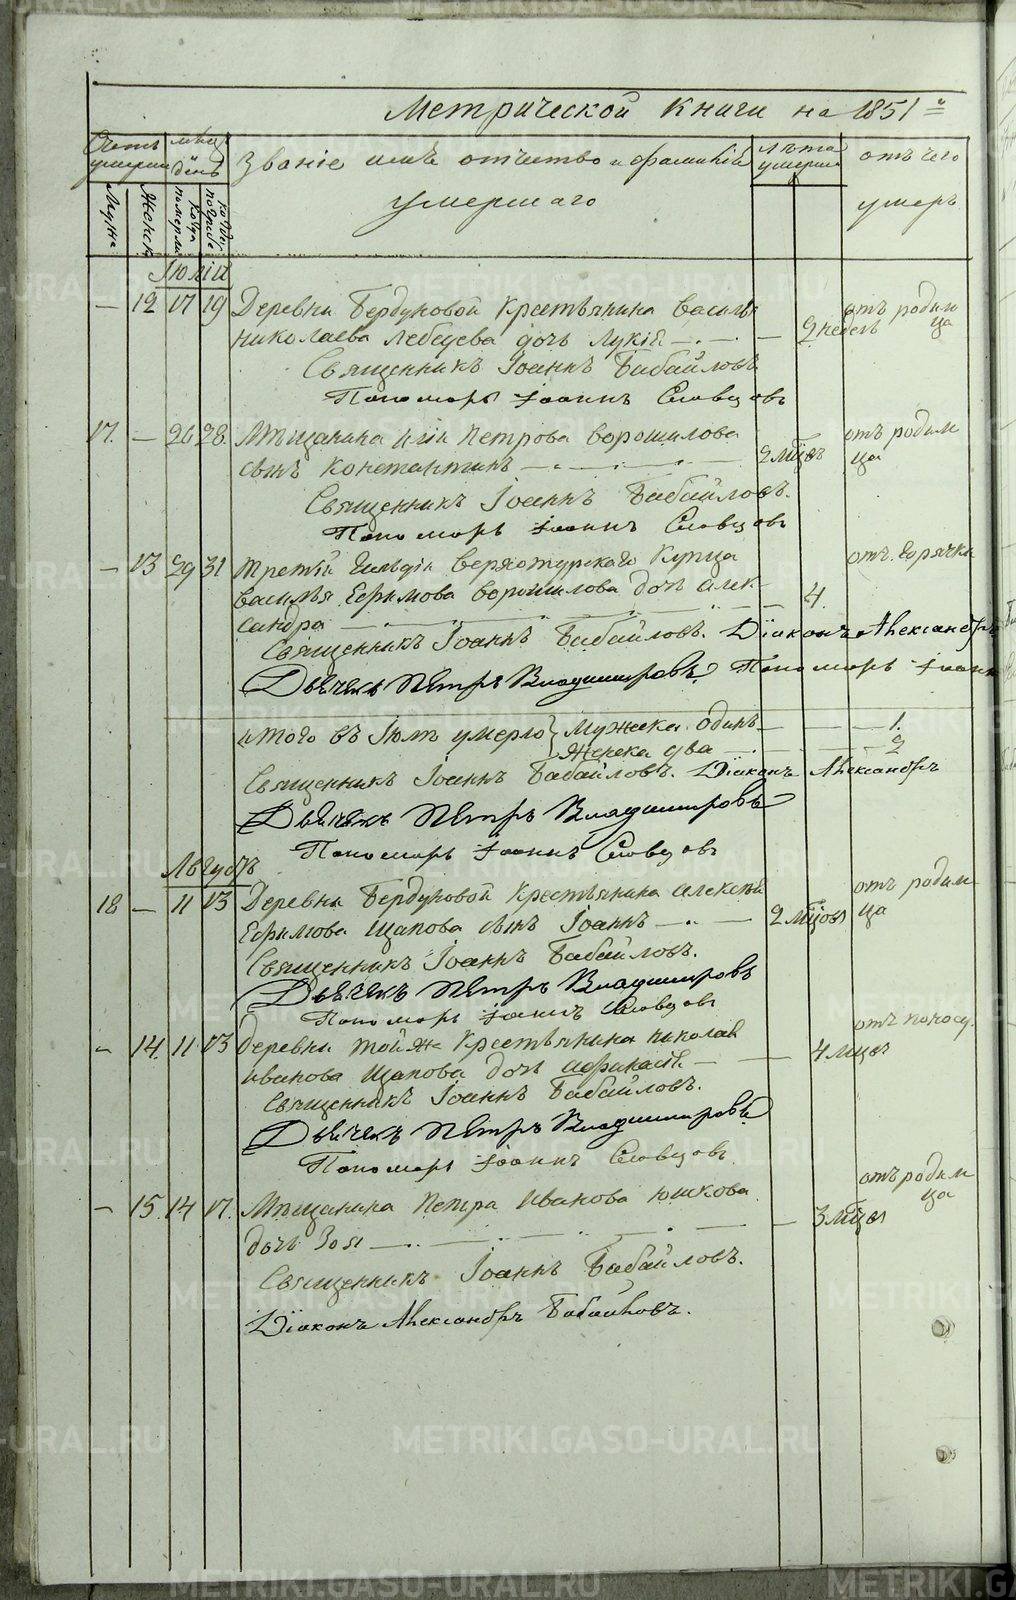 Метрической книги на 1851й
Счетъ умершихъ
Мѣсяцъ и день
Званіе имя отчество и фамилія
умершаго
Лѣта умершихъ
отъ чего
умеръ
Мужск
Женск
Когда померли
Когда погребе
Іюлій
— 12 17 19 Деревни Бердуковой Крестьянина Василья
Николаева Лебедева дочь Лукія — 2 недель отъ родим
ца
Священникъ Іоаннъ Бабайловъ
Пономарь Іоаннъ Словцовъ
17. — 26 28 Мѣщанина Иліи Петрова Ворошилова
сынъ Константинъ — 2 мцвъ отъ родим
ца
Священникъ Іоаннъ Бабайловъ.
Пономарь Іоаннъ Словцовъ
— 13 29 31 Третій гильдіи Верхотурскаго Купца
Василья Ефимова Ворошилова дочь Алек
сандра — 4. отъ горячки
Священникъ Іоаннъ Бабайловъ. Діаконъ Александръ
Дьячекъ Петръ Владимировъ. Пономарь Іоаннъ
Итого въ Іюлѣ умерло Мужеска одинъ — 1.
Женска два — 2
Священникъ Іоаннъ Бабайловъ. Діаконъ Александръ
Дьячекъ Петръ Владимировъ
Пономарь Іоаннъ Словцовъ
Августъ
18 — 11 13 Деревни Бердуковой Крестьянина Алексѣя
Ефимова Щапова сынъ Іоаннъ — 2 мцовъ отъ родим
ца
Священникъ Іоаннъ Бабайловъ.
Дьячекъ Петръ Владимировъ
Пономарь Іоаннъ Словцовъ
— 14. 11 13 Деревни той-же Крестьянина Николая
Иванова Щапова дочь — 4 мцвъ отъ поносу.
Священникъ Іоаннъ Бабайловъ.
Дьячекъ Петръ Владимировъ
Пономарь Іоаннъ Словцовъ
— 15. 14 17. Мѣщанина Петра Иванова Юшкова
дочь Зоя — 3 мцвъ отъ родим
ца
Священникъ Іоаннъ Бабайловъ.
Діаконъ Александръ Бабайловъ.
METRIKI.GASO-URAL.RU